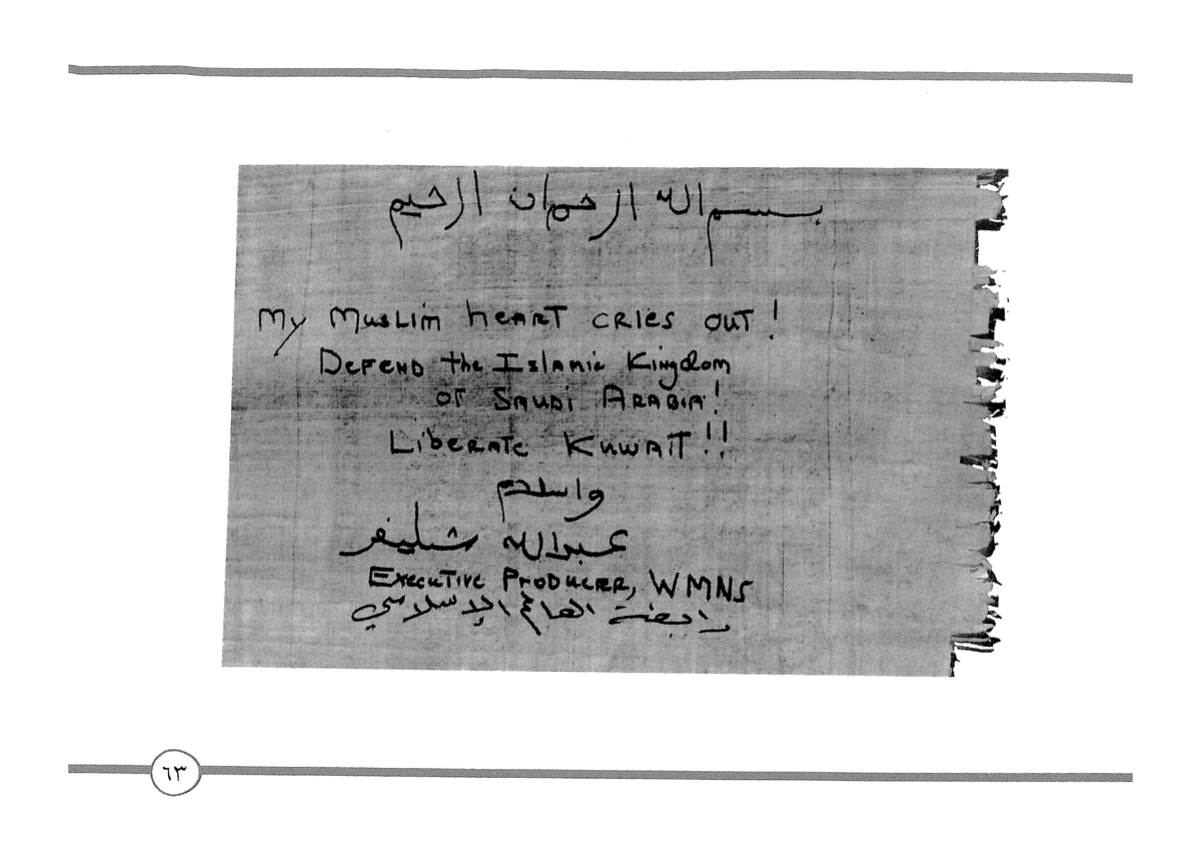 بسم الله ارحمان ارحيم
My Muslim heart cries out!
Defend the Islamic Kingdom
of Saudi Arabia!
Liberate Kuwait!!
واسلام
عبدالله شليفر
Executive Producer, WMNS
رابطة العالم الإسلامي
٦٣